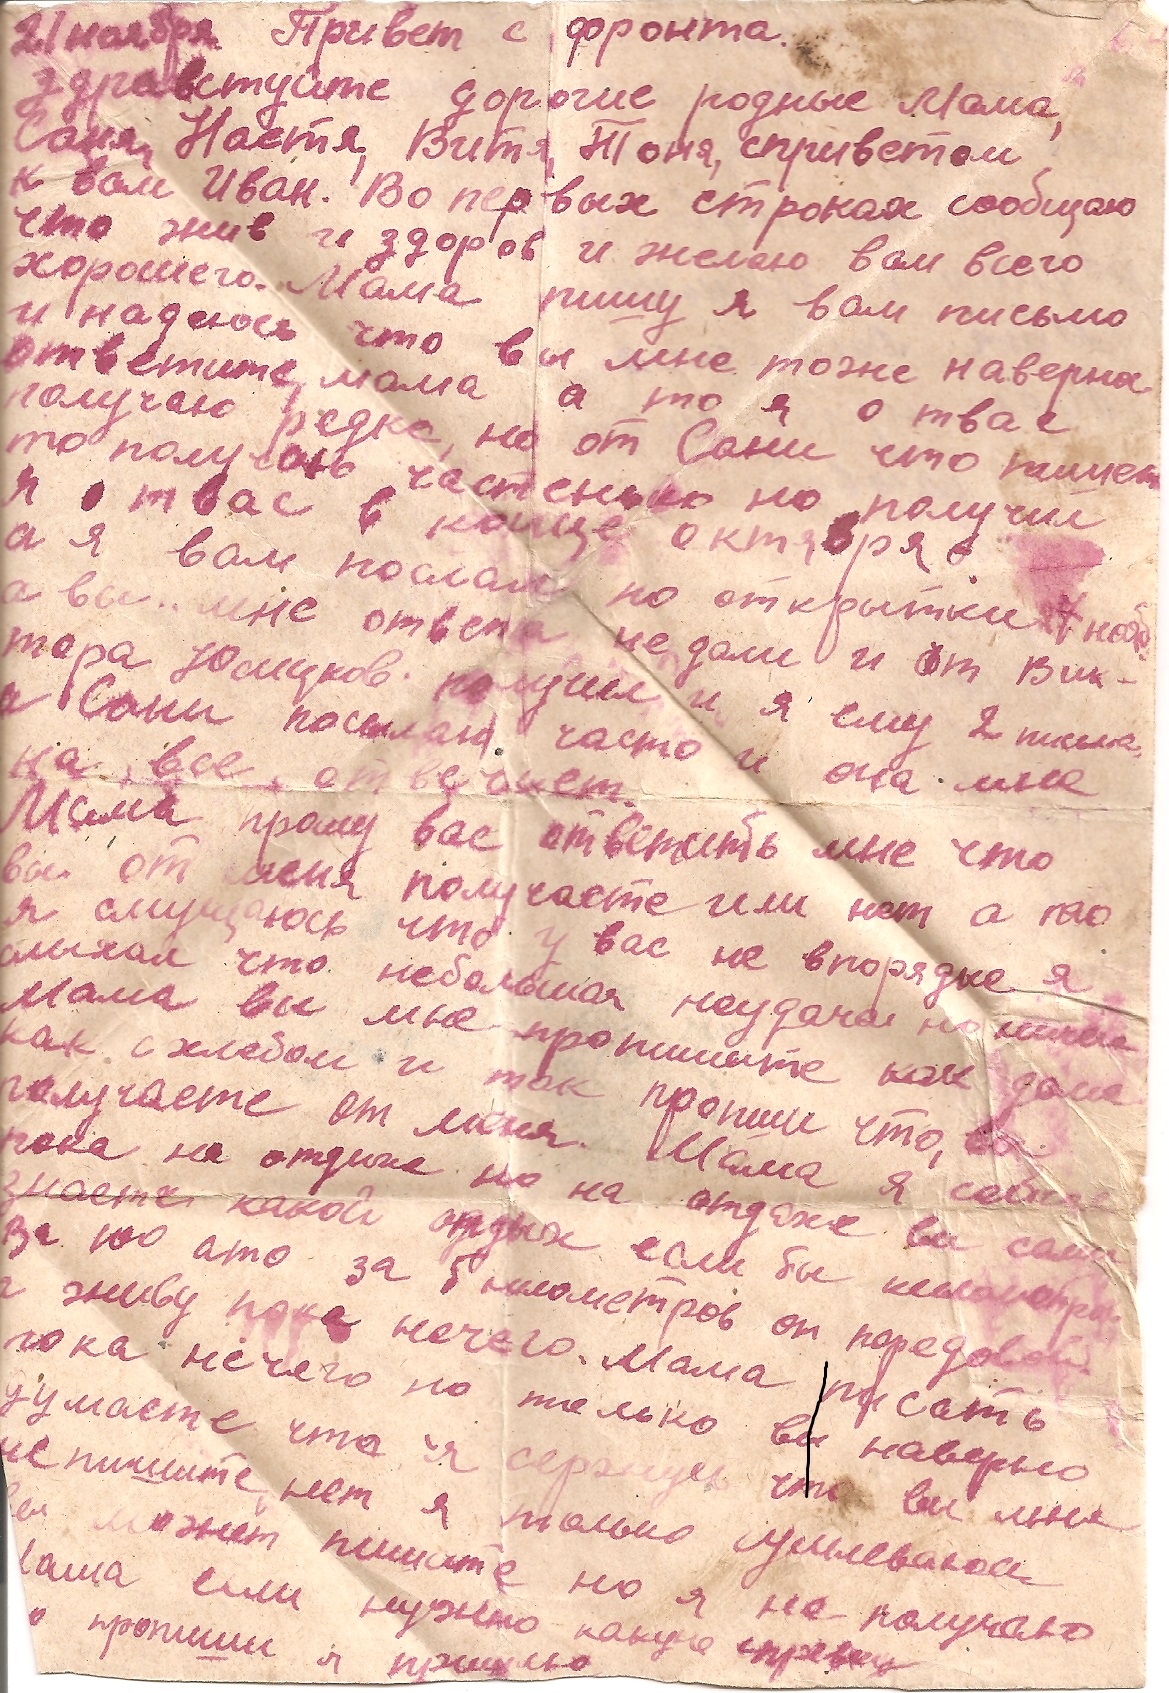 21 ноября Привет с фронта.
Здравствуйте дорогие родные Мама,
Саня, Настя, Витя, Тоня, сприветом
к вам Иван. Во первых строках сообщаю
что жив и здоров и желаю вам всего
хорошего. Мама пишу я вам письмо
и надеюсь что вы мне тоже наверна
ответите, мама а то я отвас
получаю редко, но от Сани что пишет
то получаю частенько но получил
я отвас в конце октября
а я вам послал по открытки 7 нояб.
а вы мне ответа недали и от Вик-
тора получил и я ему 2 письма
а Сани посылаю часто и она мне
на все отвечает.
Мама прошу вас ответить мне что
вы от меня получаете или нет а то
я смущаюсь что у вас не впорядке я
слыхал что небольшая неудача но
Мама вы мне пропишите как дома
как схлебом и так пропиши что, вы
получаете от меня. Мама я сейчас
пока на отдыхе но на отдыхе вы сами
знаете какой отдых если бы километров
за 100 ато за 5 километров от передовой
и живу пока нечего. Мама писать
пока нечего но только вы наверно
думаете что я сержусь что вы мне
не пишите, нет я только
вы может пишите но я не получаю
Мама если нужно какую справку
то пропиши я пришлю